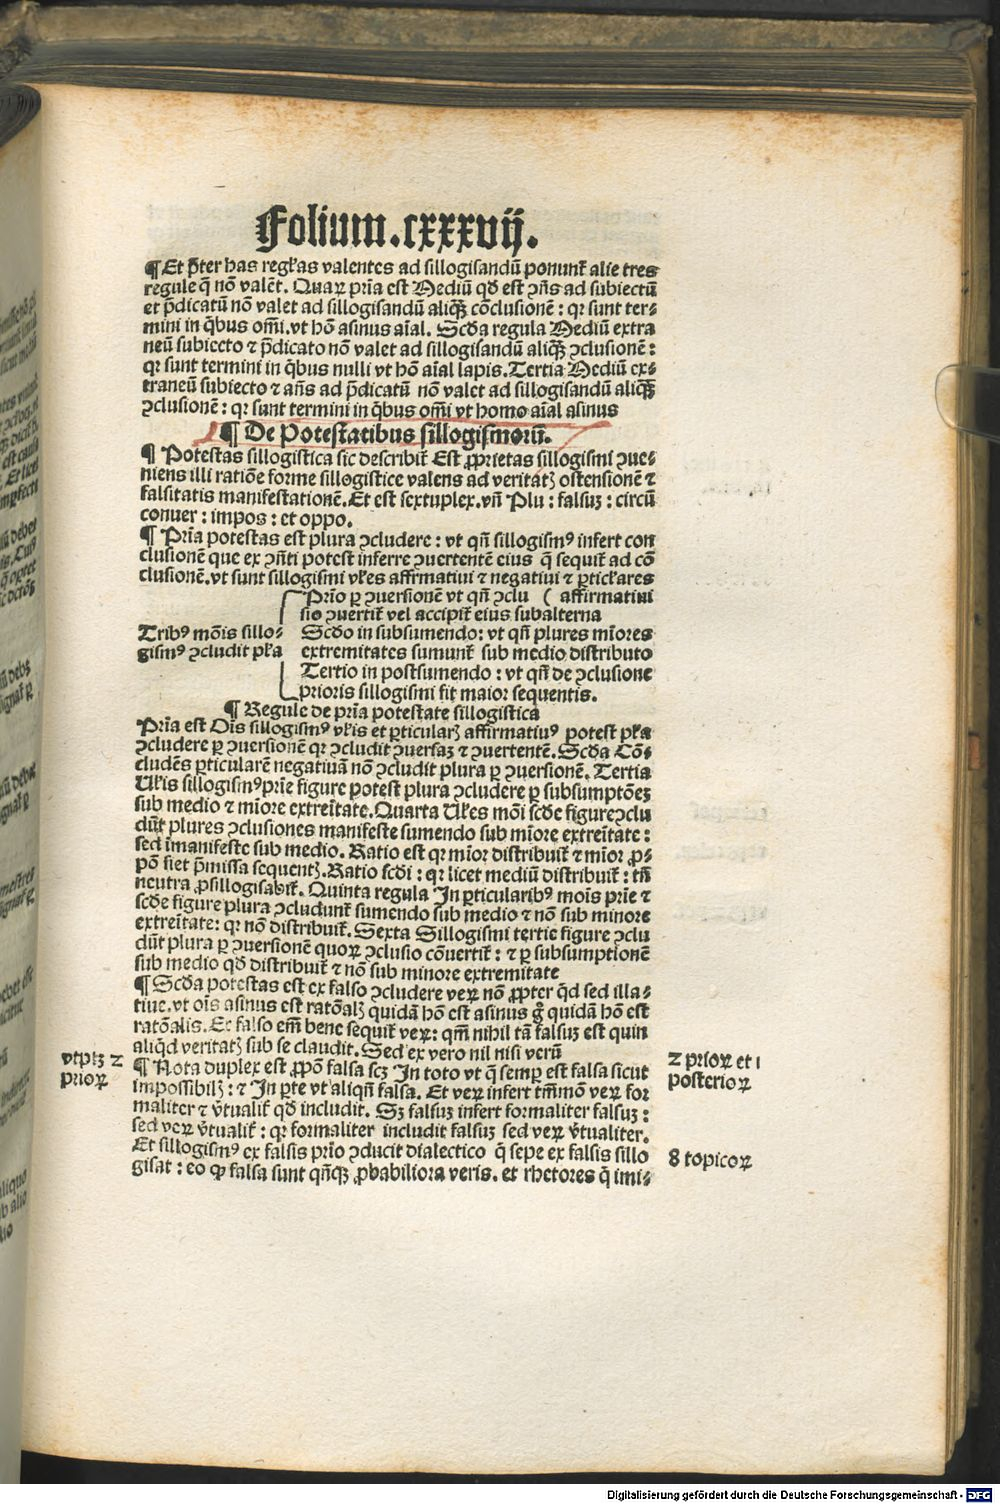 Folium.cxxxvij.
¶ Et p̄ter has regl̄as valentes ad sillogisandū ponunt̄ alie tres
regule q̄ nō valēt. Quaꝝ pria est Mediū qd̄ est ꝯn̄s ad subiectū
et p̄dicatū nō valet ad sillogisandū aliqꝫ cōclusionē : qꝛ sunt ter⸗
mini in qͥbus om̄i.vt hō asinus aīal. Scd̄a regula Mediū extra
neū subiecto ⁊ p̄dicato nō valet ad sillogisandū aliqꝫ ꝯclusionē :
qꝛ sunt termini in qͥbus nulli vt hō aīal lapis.Tertia Mediū ex⸗
traneū subiecto ⁊ an̄s ad p̄dicatū nō valet ad sillogisandū aliqꝫ
ꝯclusionē : qꝛ sunt termini in qͥbus om̄i vt homo aīal asinus
¶ De Potestatibus sillogismorū.
¶ Potestas sillogistica sic describit̄ Est ꝓprietas sillogismi ꝯue⸗
niens illi ratiōe forme sillogistice valens ad veritatꝫ ostensionē ⁊
falsitatis manifestationē.Et est sextuplex.vn̄ Plu : falsuꝫ : circū
conuer : impos : et oppo.
¶ Pria potestas est plura ꝯcludere : vt qn̄ sillogismꝰ infert con
clusionē que ex ꝯn̄ti potest inferre ꝯuertentē eius q̄ sequit̄ ad cō
clusionē.vt sunt sillogismi vl̄es affirmatiui ⁊ negatiui ⁊ ꝑticl̄ares
Prīo ꝑ ꝯuersionē vt qn̄ ꝯclu ( affirmatiui
sio ꝯuertit̄ vel accipit̄ eius subalterna
Tribꝰ mōis sillo⸗ Scd̄o in subsumendo: vt qn̄ plures mīores
gismꝰ ꝯcludit pl̄a extremitates sumunt̄ sub medio distributo
Tertio in postsumendo : vt qn̄ de ꝯclusione
prioris sillogismi fit maior sequentis.
¶ Regule de pria potestate sillogistica
Pria est Oīs sillogismꝰ vl̄is et ꝑticularꝫ affirmatiuꝰ potest pl̄a
ꝯcludere ꝑ ꝯuersionē qꝛ ꝯcludit ꝯuersaꝫ ⁊ ꝯuertentē. Scd̄a Cō⸗
cludēs ꝑticularē negatiuā nō ꝯcludit plura ꝑ ꝯuersionē. Tertia
Vl̄is sillogismꝰ prīe figure potest plura ꝯcludere ꝑ subsumptōeꝫ
sub medio ⁊ mīore extreītate. Quarta Vl̄es mōi scd̄e figure ꝯclu
dūt plures ꝯclusiones manifeste sumendo sub mīore extreītate :
sed īmanifeste sub medio. Ratio est qꝛ mīor distribuit̄ ⁊ mīor ꝓ⸗
pō fiet p̄missa sequentꝫ. Ratio scd̄i : qꝛ licet mediū distribuit̄ : tn̄
neutra ꝓsillogisabit̄. Quinta regula In ꝑticularibꝰ mōis prīe ⁊
scd̄e figure plura ꝯcludunt̄ sumendo sub medio ⁊ nō sub minore
extreītate: qꝛ nō distribuit̄. Sexta Sillogismi tertie figure ꝯclu
dūt plura ꝑ ꝯuersionē quoꝝ ꝯclusio cōuertit̄ : ⁊ ꝑ subsumptionē
sub medio qd̄ distribuit̄ ⁊ nō sub minore extremitate
¶ Scd̄a potestas est ex falso ꝯcludere veꝝ nō ꝓpter qͥd sed illa⸗
tiue.vt oīs asinus est ratōalꝫ quidā hō est asinus gͦ quidā hō est
ratōalis. Ex falso em̄ bene sequit̄ veꝝ: qm̄ nihil tā falsuꝫ est quin
aliqͥd veritatꝫ sub se claudit. Sed ex vero nil nisi verū
vtptꝫ 2
prioꝝ
¶ Nota duplex est ꝓpō falsa scꝫ In toto vt q̄ semꝑ est falsa sicut
impossibilꝫ : ⁊ In ꝑte vt aliqn̄ falsa. Et veꝝ infert tm̄mō veꝝ for
maliter ⁊ v̄tualit̄ qd̄ includit. Sꝫ falsuꝫ infert formaliter falsuꝫ :
sed veꝝ v̄tualit̄ : qꝛ formaliter includit falsuꝫ sed veꝝ v̄tualiter.
Et sillogismꝰ ex falsis prīo ꝯducit dialectico q̄ sepe ex falsis sillo
gisat : eo ꝙ falsa sunt qn̄qꝫ ꝓbabiliora veris. et rhetores q̄ imi⸗
2 prioꝝ et 1
posterioꝝ
8 topicoꝝ
Digitalisierung gefördert durch die Deutsche Forschungsgemeinschaft - DFG